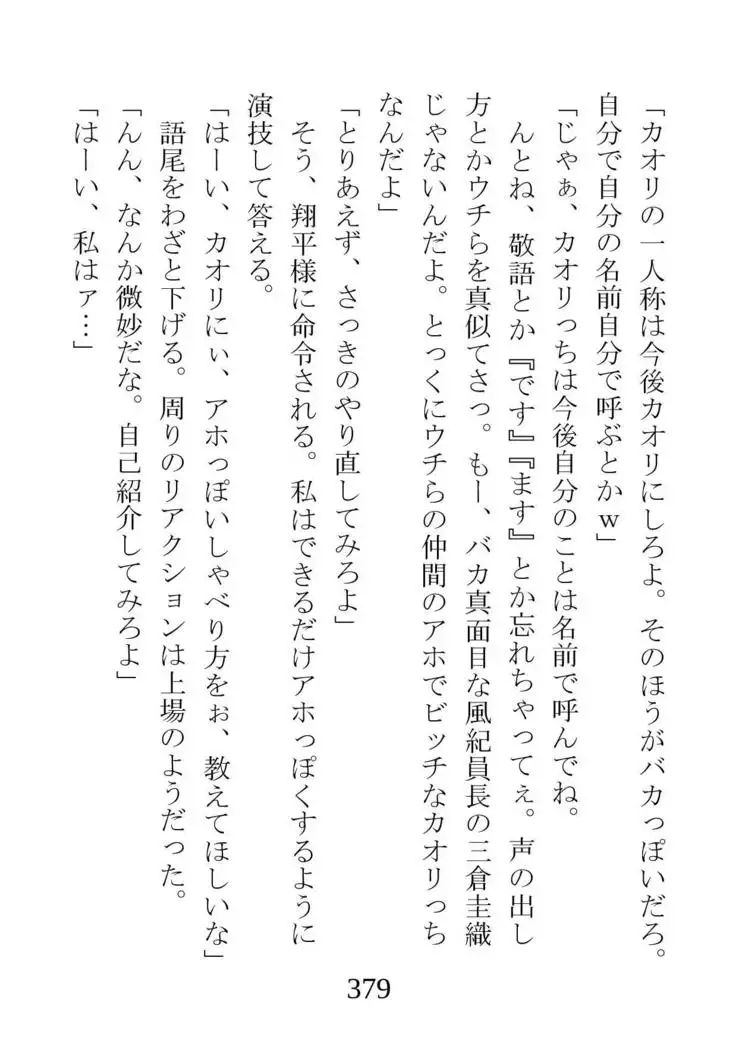 「カオリの一人称は今後カオリにしろよ。そのほうがバカっぽいだろ。
自分で自分の名前自分で呼ぶとかｗ」
「じゃぁ、カオリっちは今後自分のことは名前で呼んでね。
んとね、敬語とか『です』『ます』とか忘れちゃってぇ。声の出し
方とかウチらを真似てさっ。もー、バカ真面目な風紀員長の三倉圭織
じゃないんだよ。とっくにウチらの仲間のアホでビッチなカオリっち
なんだよ」
「とりあえず、さっきのやり直してみろよ」
そう、翔平様に命令される。私はできるだけアホっぽくするように
演技して答える。
「はーい、カオリにぃ、アホっぽいしゃべり方をぉ、教えてほしいな」
語尾をわざと下げる。周りのリアクションは上場のようだった。
「んん、なんか微妙だな。自己紹介してみろよ」
「はーい、私はァ…」
379